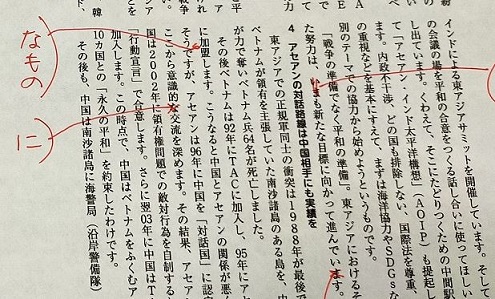 インドによる東アジアサミットを開催しています。そし
の会議の場を平和の合意をつくる話し合いに使ってほしい
し出ています。くわえて、そこにたどりつくための中間駅
て「アセアン・インド太平洋構想」(AOIP)も提起し
ます。内政不干渉、どの国も排除しない、国際法を尊重、
の重視などを基本にすえて、まずは海洋協力やSDGsな
別のテーマでの協力から始めようというものです。
「戦争の準備でなく平和の準備」。東アジアにおけるそ
た努力は、いまも新たな目標に向かって進んでいます。
4 アセアンの対話路線は中国相手にも実績を
東アジアでの正規軍同士の衝突は1988年が最後で
ベトナムが領有を主張していた南沙諸島のある島を、中
が力で奪いベトナム兵64名が死亡しました。
その後ベトナムは92年にTACに加入し、95年にアセ
に加盟します。こうなると中国とアセアンの関係が悪
そうですが、アセアンは96年に中国を「対話国」に認
ここから意識的な交流を深めます。その結果、アセア
国は2002年に『領有権』題での敵対行為を自制する
行動宣言」で合意します。さらに翌03年に中国はT
加入します。この時点で、中国はベトナムをふくむア
10カ国との「永久の平和」を約束したわけです。
その後も、中国は南沙諸島に海警局(沿岸警備隊)
なもの
に
韓